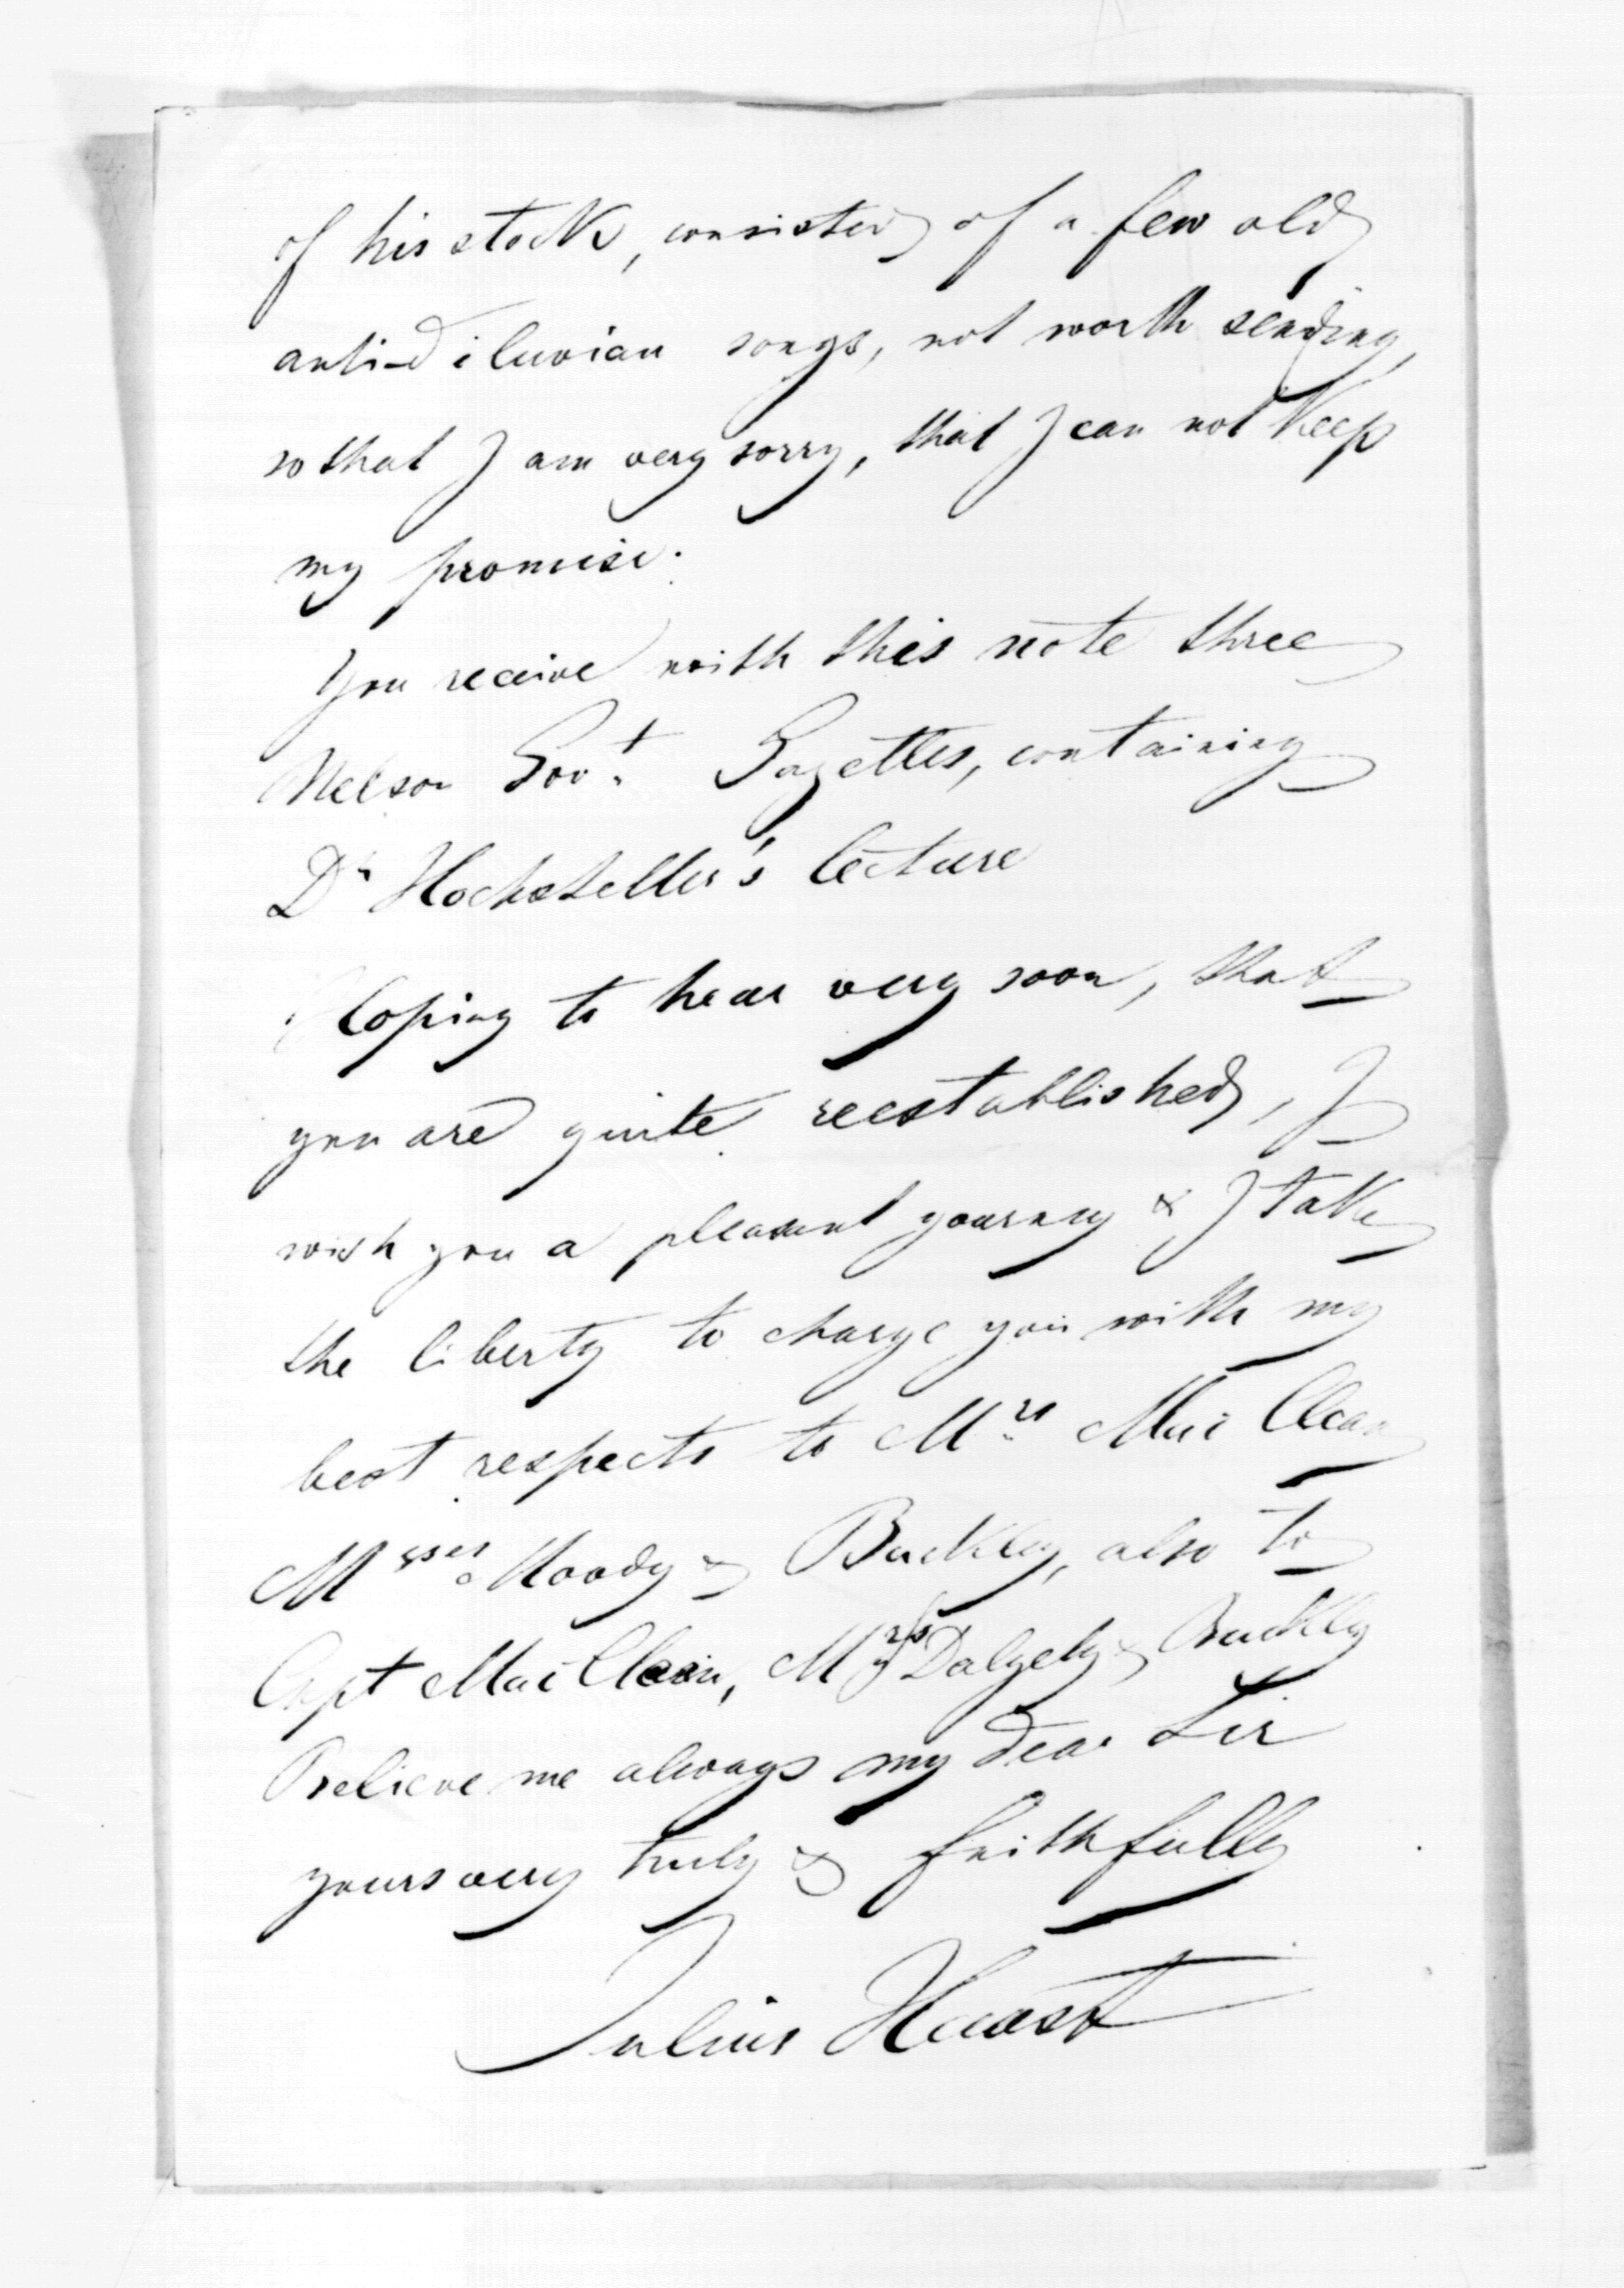 of his stock, consisted of a few old
anti-diluvian songs, not worth sending,
so that I am very sorry, that I can not keep
my promise.
You receive with this note three
Nelson Govt. Gazettes, containing
Dr Hochstetter's lecture
Hoping to hear very soon, that
you are quite reestablished, I
wish you a pleasant yourney & I take
the liberty to charge you with my
best respects to Mrs Mac Clean
Moody & Buckley, also to
Capt Mac Clean, Dalgety & Buckley
Believe me always my dear Sir
yours very truly & faithfully
Julius Haast